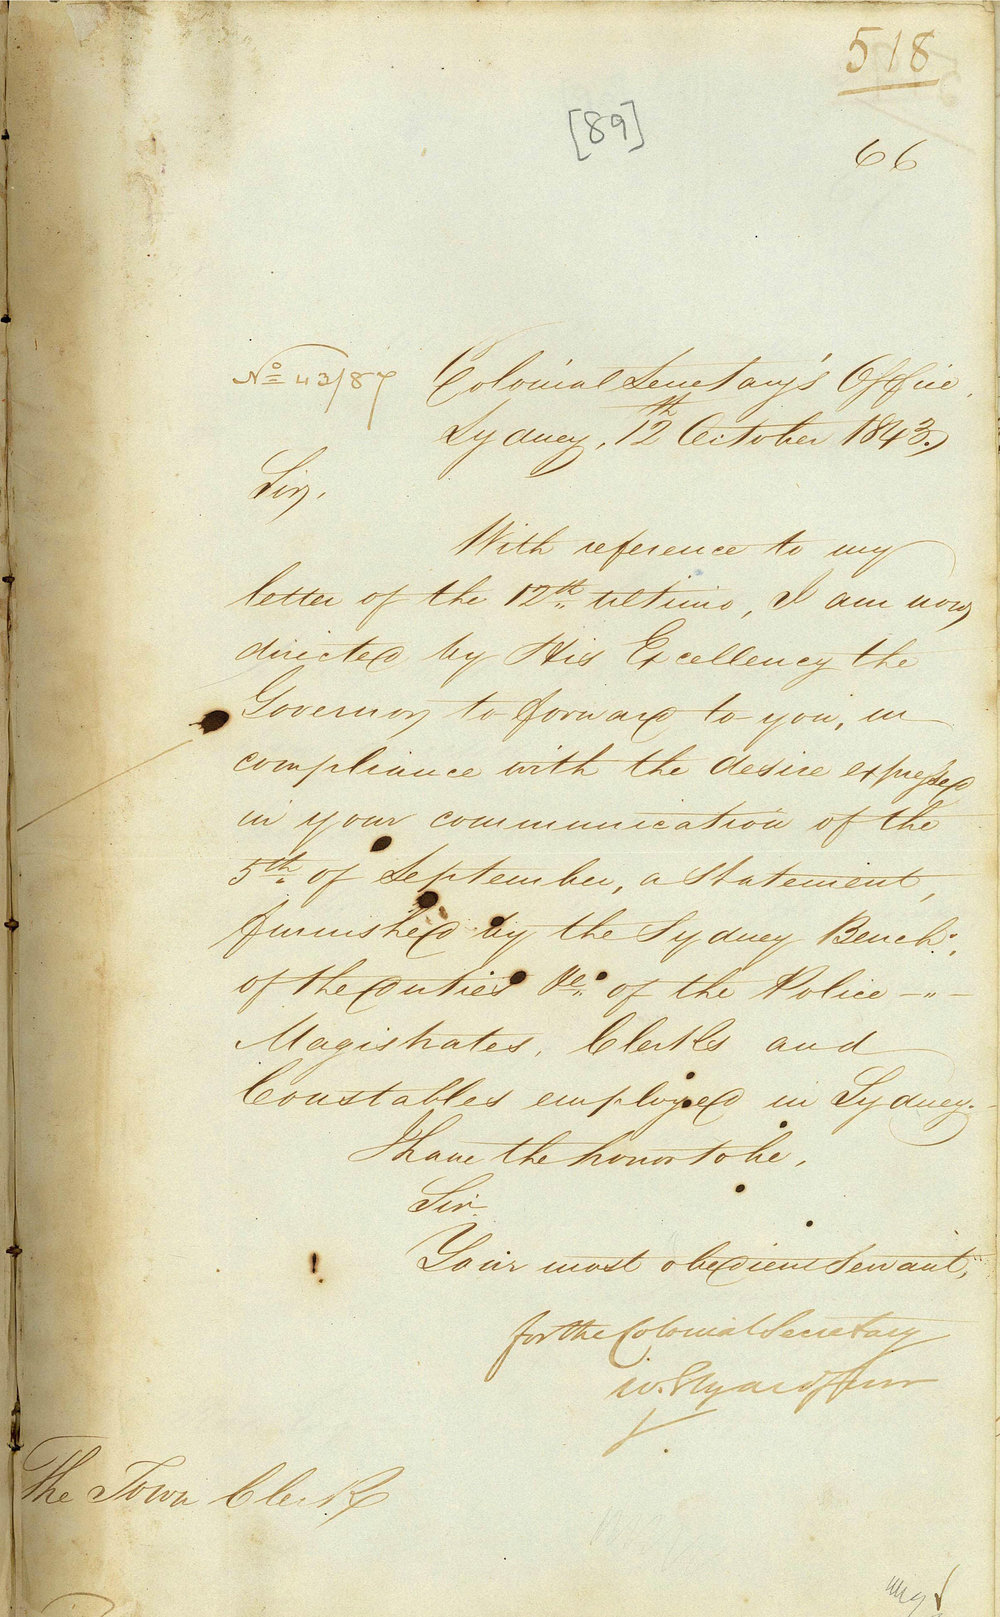 518
[89]
66
No 43/87 Colonial Secretary's Office,
Sydney, 12th October 1843.
Sir,
With reference to my
letter of the 12th ultimo, I am now
directed by His Excellency the
Governor to forward to you, in
compliance with the desire expressed
in your communication of the
5th of September, a Statement,
furnished by the Sydney Bench,
of the duties &c. of the Police
Magistrates, Clerks and
Constables employed in Sydney.
I have the honor to be,
Sir
Your most obedient Servant,
for the Colonial Secretary
W. Elyard Junr
The Town Clerk